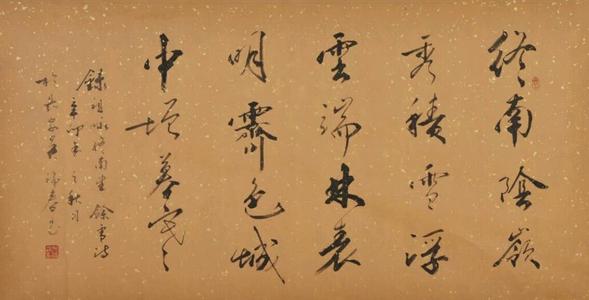 終南陰嶺
秀積雪浮
雲端林表
明霽色城
中增暮寒
錄祖詠終南望餘雪詩
辛卯年之秋月
於長安